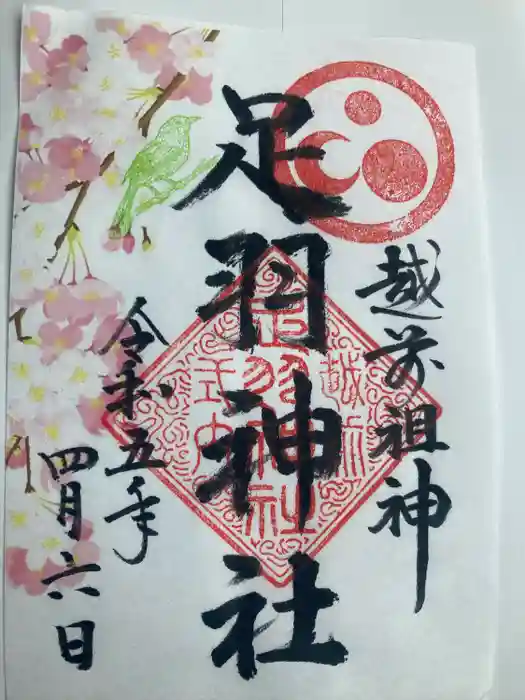 越前祖神
足羽神社
令和五年
四月六日
越前
足羽神社
式内